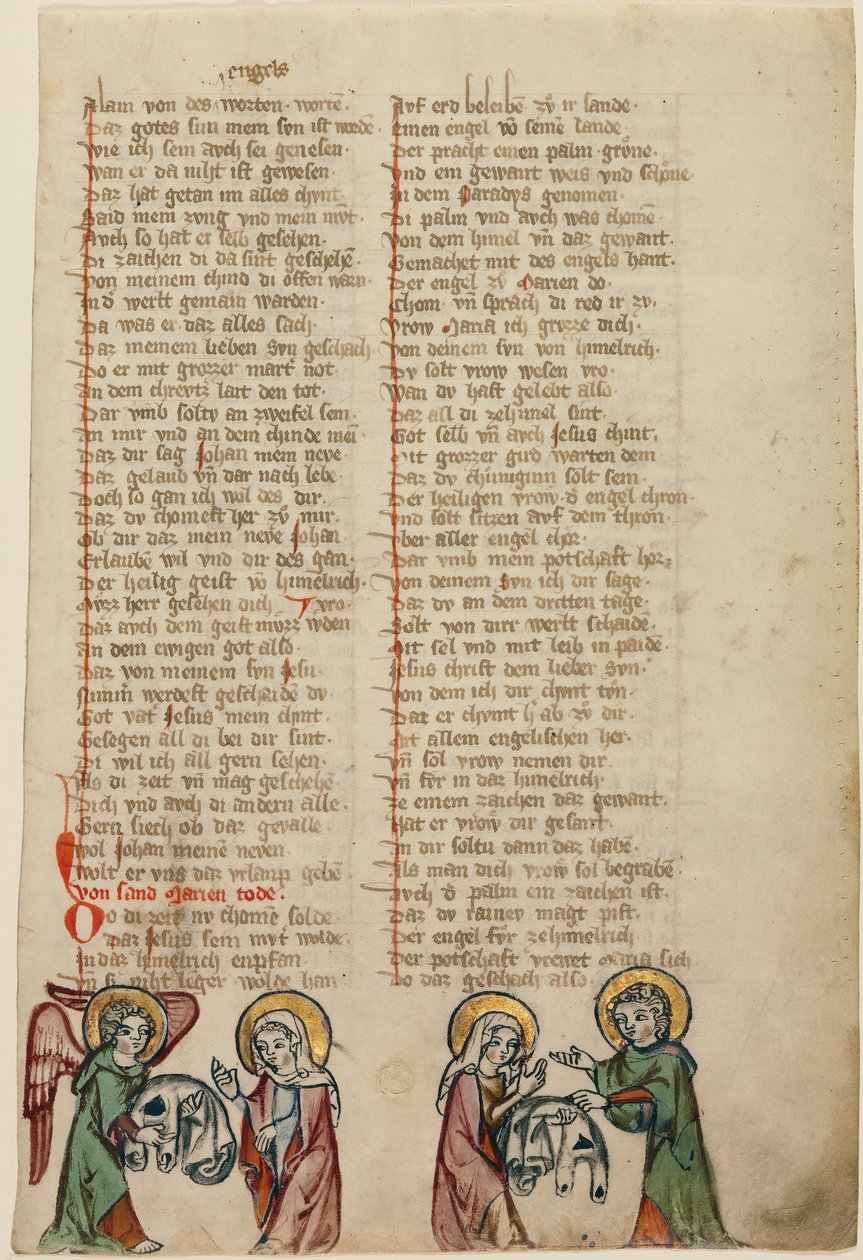 engels
Alain von des worten· wortē·
Daz gotes sun mein syn ist wordē·
Wie ich sein avch sei genesen·
Wan er da niht ist gewesen·
Daz hat getan im alles chvnt·
Said mein zvng vnd mein mvt·
Avch so hat er selb gesehen·
Di zaichen di da sint geschehē·
Von meinem chind di offen warn·
In d' werlt gemain warden·
Da was er daz alles sach·
Daz meinem lieben Syn geschach·
Do er mit grozzer mart' not·
An dem chrevtz lait den tot·
Dar vmb soltv an zweifel sein·
An mir vnd an dein chinde mei
Daz dir sag Johan mein neve·
Daz gelaub vn̄ dar nach lebe·
Doch so gan ich wol des dir·
Daz dv chomest her zv mir·
Ob dir daz mein neve Johan·
Erlaubē wil vnd dir des gan·
Der heilig geist vō himelrich·
Mvzz herr gesehen dich vro·
Daz avch dem geist mvzz w'den
An dem ewigen got also·
Daz von meinem syn Jesu
Nimm' werdest geschaidē dv·
Got vat' Jesus mein chint·
Gesegen all di bei dir sint·
Di wil ich all gern sehen·
Als di zeit vn̄ mag geschehē
Dich vnd avch di andern alle·
Gern siech ob daz gevalle·
Wol Johan meinē neven·
Wolt er vns daz vrlaup gebē
Von sand Marien tode·
Do di zeit nv chomē solde
Daz Jesus sein mvt' wolde·
In daz himelrich enpfan·
Vn̄ si niht lenger wolde han
Avf erd beleibē zv ir sande·
Einen engel vō seinē lande·
Der pracht einen palm· grvne·
Vnd ein gewant weis vnd schone·
In dem Paradys genomen·
Di palm vnd avch was chomē·
Von dem himel vn̄ daz gewant·
Gemachet mit des engels hant·
Der engel zv Marien do·
Chom· vn̄ sprach di red ir zv·
Vrow Maria ich grvzze dich·
Von deinem syn von himelrich·
Dv solt vrow wesen vro·
Wan dv hast gelebt also·
Daz all di zehimel sint·
Got selb vn̄ avch Jesus chint·
Mit grozzer gird warten dein
Daz dv chuniginn solt sein·
Der heiligen vrow· d' engel chron·
Vnd solt sitzen avf dem thron·
Vber aller engel chor·
Dar vmb mein potschaft hor·
Von deinem Syn ich dir sage·
Daz dv an dem dritten tage·
Solt von dirr werlt schaidē·
Mit sel vnd mit leib in paidē·
Jesus christ dem lieber Syn·
Von dem ich dir chvnt tvn·
Daz er chvmt h' ab zv dir·
Mit allem engelischen her·
Vn̄ sol vrow nemen dir·
Vn̄ fvr in daz himelrich·
Ze einem zaichen daz gewant·
Hat er vrow dir gesant·
In dir soltu dann daz habē·
Als man dich vrow sol begrabē·
Avch d' palm ein zaichen ist·
Daz dv rainev magt pist·
Der engel fvr zehimelrich
Der potschaft vrewet Maria sich
Do daz geschach also·